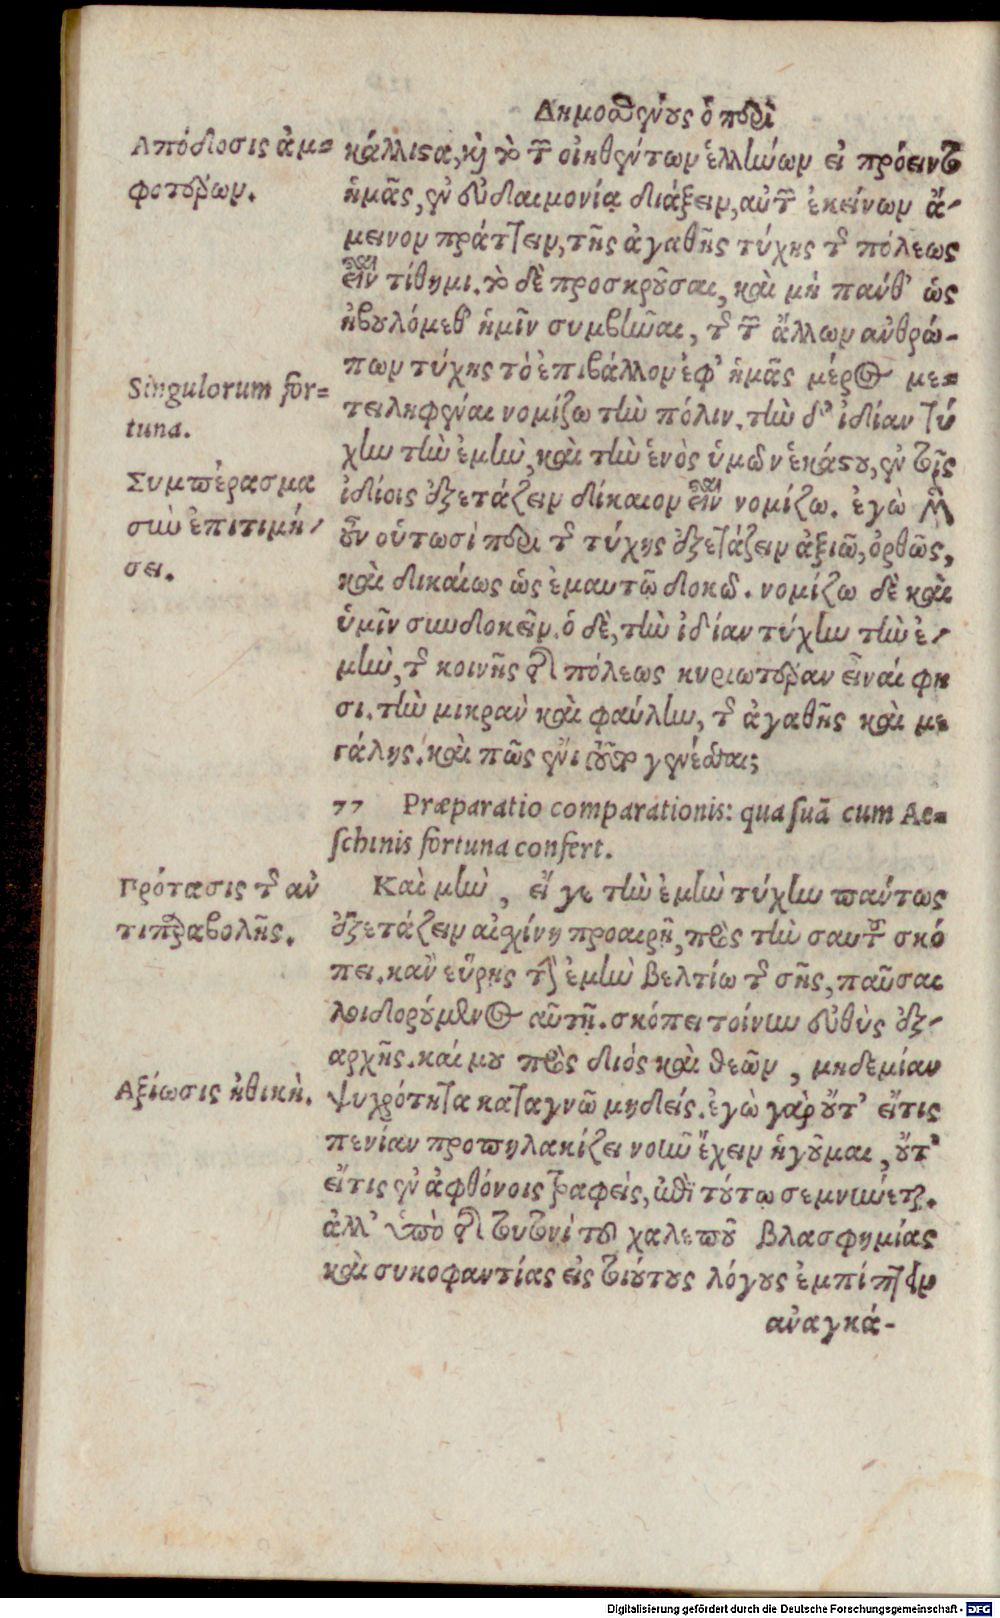 Δημοσθένους ὁ περὶ
Απόδοσις ἀμ=
φοτέρων.
κάλλιστα, καὶ τὸ τῶν οἰηθέντων ἑλλήνων εἰ πρόειντο
ἡμᾶς, ἐν εὐδαιμονίᾳ διάξειν, αὐτῶν ἐκείνων ἄ-
μεινον πράττειν, τῆς ἀγαθῆς τύχης τῆς πόλεως
εἶναι τίθημι. τὸ δὲ προσκροῦσαι, καὶ μὴ πάνθ' ὡς
ἠβουλόμεθ' ἡμῖν συμβῆναι, τῆς τῶν ἄλλων ἀνθρώ-
πων τύχης τὸ ἐπιβάλλον ἐφ' ἡμᾶς μέρος με=
τειληφέναι νομίζω τὴν πόλιν. τὴν δ' ἰδίαν τύ
χην τὴν ἐμὴν, καὶ τὴν ἑνὸς ὑμῶν ἑκάστου, ἐν τοῖς
ἰδίοις ἐξετάζειν δίκαιον εἶναι νομίζω. ἐγὼ μὲν
οὖν οὑτωσὶ περὶ τῆς τύχης ἐξετάζειν ἀξιῶ, ὀρθῶς,
καὶ δικαίως ὡς ἐμαυτῷ δοκῶ. νομίζω δὲ καὶ
ὑμῖν συνδοκεῖν. ὁ δὲ, τὴν ἰδίαν τύχην τὴν ἐ-
μὴν, τῆς κοινῆς τῆς πόλεως κυριωτέραν εἶναί φη
σι. τὴν μικρὰν καὶ φαύλην, τῆς ἀγαθῆς καὶ με
γάλης. καὶ πῶς ἔνι τοῦτο γενέσθαι;
Singulorum for=
tuna.
Συμπέρασμα
σὺν ἐπιτιμή-
σει.
77 Præparatio comparationis: qua suã cum Ae=
schinis fortuna confert.
Πρότασις τῆς ἀν
τιπαραβολῆς.
Καὶ μὴν, εἴ γε τὴν ἐμὴν τύχην πάντως
ἐξετάζειν αἰσχίνη προαιρῇ, πρὸς τὴν σαυτοῦ σκό
πει. κἂν εὕρῃς τὴν ἐμὴν βελτίω τῆς σῆς, παῦσαι
λοιδορούμενος αὐτῇ. σκόπει τοίνυν εὐθὺς ἐξ-
αρχῆς. καί μου πρὸς διὸς καὶ θεῶν, μηδεμίαν
Αξίωσις ἠθικὴ.
ψυχρότητα καταγνῷ μηδείς. ἐγὼ γὰρ οὔτ' εἴτις
πενίαν προπηλακίζει νοῦν ἔχειν ἡγοῦμαι, οὔτ'
εἴτις ἐν ἀφθόνοις τραφείς, ἐπὶ τούτῳ σεμνύνεται.
ἀλλ' ὑπὸ τῆς τουτονὶ τοῦ χαλεποῦ βλασφημίας
καὶ συκοφαντίας εἰς τοιούτους λόγους ἐμπίπτειν
ἀναγκά-
Digitalisierung gefördert durch die Deutsche Forschungsgemeinschaft - DFG